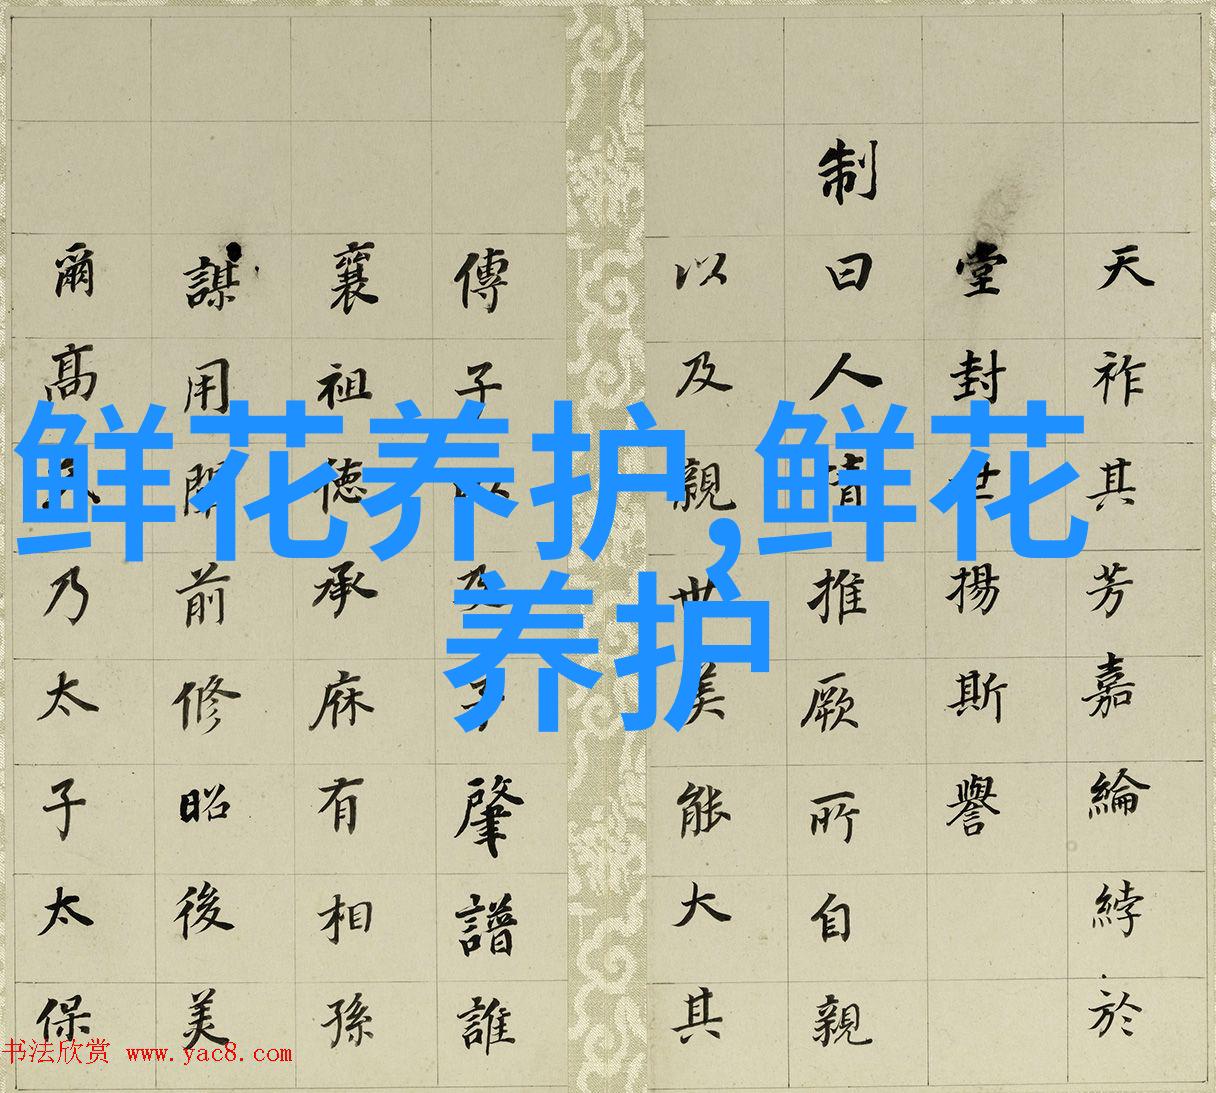 天祚其芳嘉綸綍於
堂封世揚斯譽
制曰人情推厥所自親
以及親世美能大其
傳子以及子肇譜誰
襄祖德承庥有相孫
謀用前修昭後美
爾高乃太子太保
鲜花养护,鲜花
养护
书法欣赏 www.yac8.com